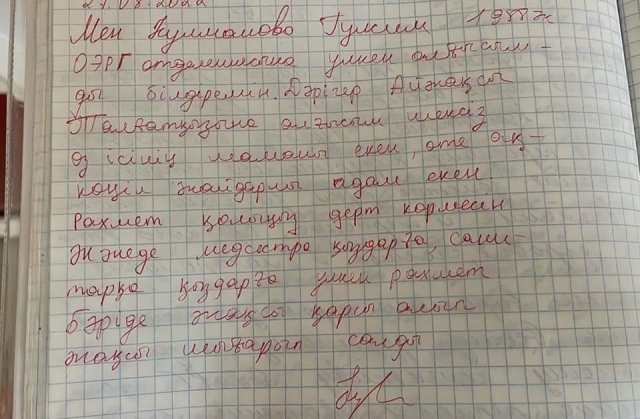 27.08.2022
Мен Кулманова Гулсим 1988ж
ОЭРГ отделениясына улкен алғысым-
ды білдеремін. Дәрігер Айжақсы
Талғатқызына алғысым шексіз
өз ісініц маманы екен, өте ақ-
көціл жайдарлы адам екен.
Рахмет қолыцыз дерт кормесін
Жәнеде медсестра қыздарға, сани-
тарка қыздарға улкен рахмет
Бәріде жақсы қарсы алып
жақсы шығарып салды